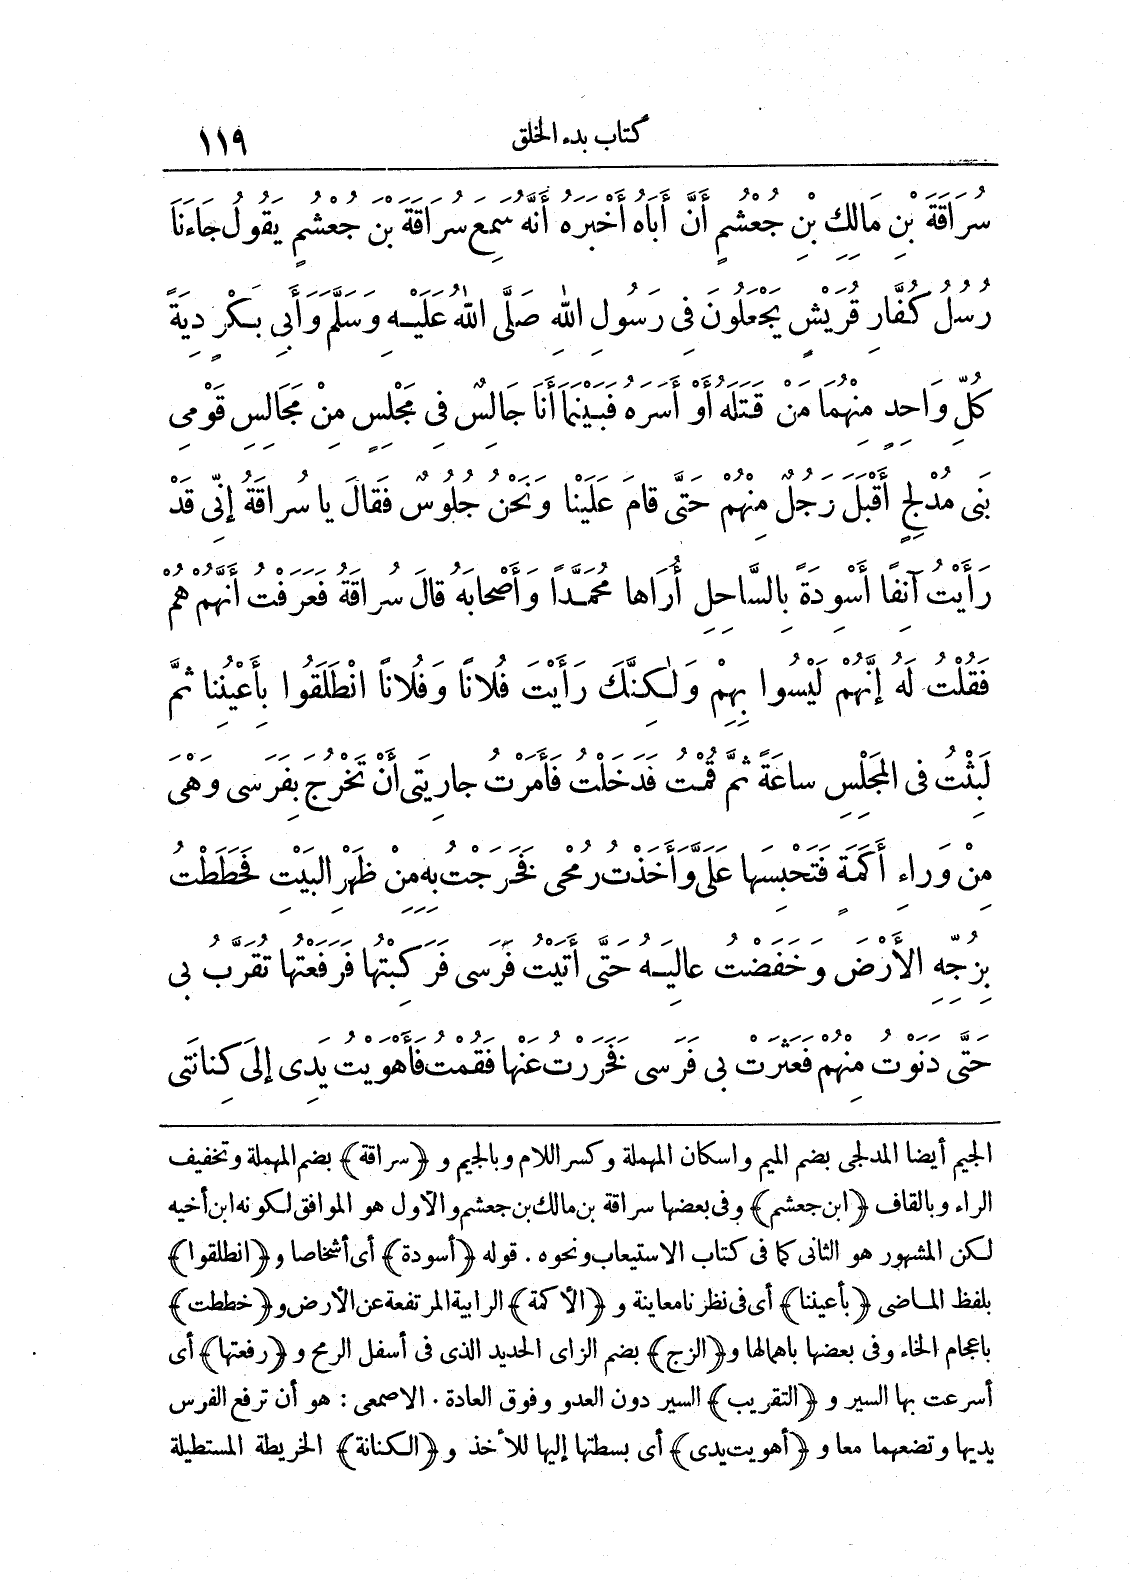 كتاب بدء الخلق ١١٩
سُرَاقَةَ بْنِ مَالِكِ بْنِ جُعْشُمٍ أَنَّ أَبَاهُ أَخْبَرَهُ أَنَّهُ سَمِعَ سُرَاقَةَ بْنَ جُعْشُمٍ يَقُولُ جَاءَنَا
رُسُلُ كُفَّارِ قُرَيْشٍ يَجْعَلُونَ فِي رَسُولِ اللهِ صَلَّى اللهُ عَلَيْهِ وَسَلَّمَ وَأَبِي بَكْرٍ دِيَةَ
كُلِّ وَاحِدٍ مِنْهُمَا مَنْ قَتَلَهُ أَوْ أَسَرَهُ فَبَيْنَمَا أَنَا جَالِسٌ فِي مَجْلِسٍ مِنْ مَجَالِسِ قَوْمِي
بَنِي مُدْلِجٍ أَقْبَلَ رَجُلٌ مِنْهُمْ حَتَّى قَامَ عَلَيْنَا وَنَحْنُ جُلُوسٌ فَقَالَ يَا سُرَاقَةُ إِنِّي قَدْ
رَأَيْتُ آنِفًا أَسْوِدَةً بِالسَّاحِلِ أُرَاهَا مُحَمَّدًا وَأَصْحَابَهُ قَالَ سُرَاقَةُ فَعَرَفْتُ أَنَّهُمْ هُمْ
فَقُلْتُ لَهُ إِنَّهُمْ لَيْسُوا بِهِمْ وَلٰكِنَّكَ رَأَيْتَ فُلَانًا وَفُلَانًا انْطَلَقُوا بِأَعْيُنِنَا ثُمَّ
لَبِثْتُ فِي الْمَجْلِسِ سَاعَةً ثُمَّ قُمْتُ فَدَخَلْتُ فَأَمَرْتُ جَارِيَتِي أَنْ تَخْرُجَ بِفَرَسِي وَهْيَ
مِنْ وَرَاءِ أَكَمَةٍ فَتَحْبِسَهَا عَلَيَّ وَأَخَذْتُ رُمْحِي فَخَرَجْتُ بِهِ مِنْ ظَهْرِ الْبَيْتِ فَخَطَطْتُ
بِزُجِّهِ الْأَرْضَ وَخَفَضْتُ عَالِيَهُ حَتَّى أَتَيْتُ فَرَسِي فَرَكِبْتُهَا فَرَفَعْتُهَا تُقَرِّبُ بِي
حَتَّى دَنَوْتُ مِنْهُمْ فَعَثَرَتْ بِي فَرَسِي فَخَرَرْتُ عَنْهَا فَقُمْتُ فَأَهْوَيْتُ يَدِي إِلَى كِنَانَتِي
الجيم أيضا المدلجى بضم الميم واسكان المهملة وكسر اللام وبالجيم و ﴿سراقة﴾ بضم المهملة وتخفيف
الراء وبالقاف ﴿ابن جعشم﴾ وفى بعضها سراقة بن مالك بن جعشم والأول هو الموافق لكونه ابن أخيه
لكن المشهور هو الثانى كما فى كتاب الاستيعاب ونحوه . قوله ﴿أسودة﴾ أى أشخاصا و ﴿انطلقوا﴾
بلفظ الماضى ﴿بأعيننا﴾ أى فى نظرنا معاينة و ﴿الأكمة﴾ الرابية المرتفعة عن الأرض و ﴿خططت﴾
باعجام الخاء وفى بعضها باهمالها و ﴿الزج﴾ بضم الزاى الحديد الذى فى أسفل الرمح و ﴿رفعتها﴾ أى
أسرعت بها السير و ﴿التقريب﴾ السير دون العدو وفوق العادة . الاصمعى : هو أن ترفع الفرس
يديها وتضعهما معا و ﴿أهويت يدى﴾ أى بسطتها إليها للأخذ و ﴿الكنانة﴾ الخريطة المستطيلة